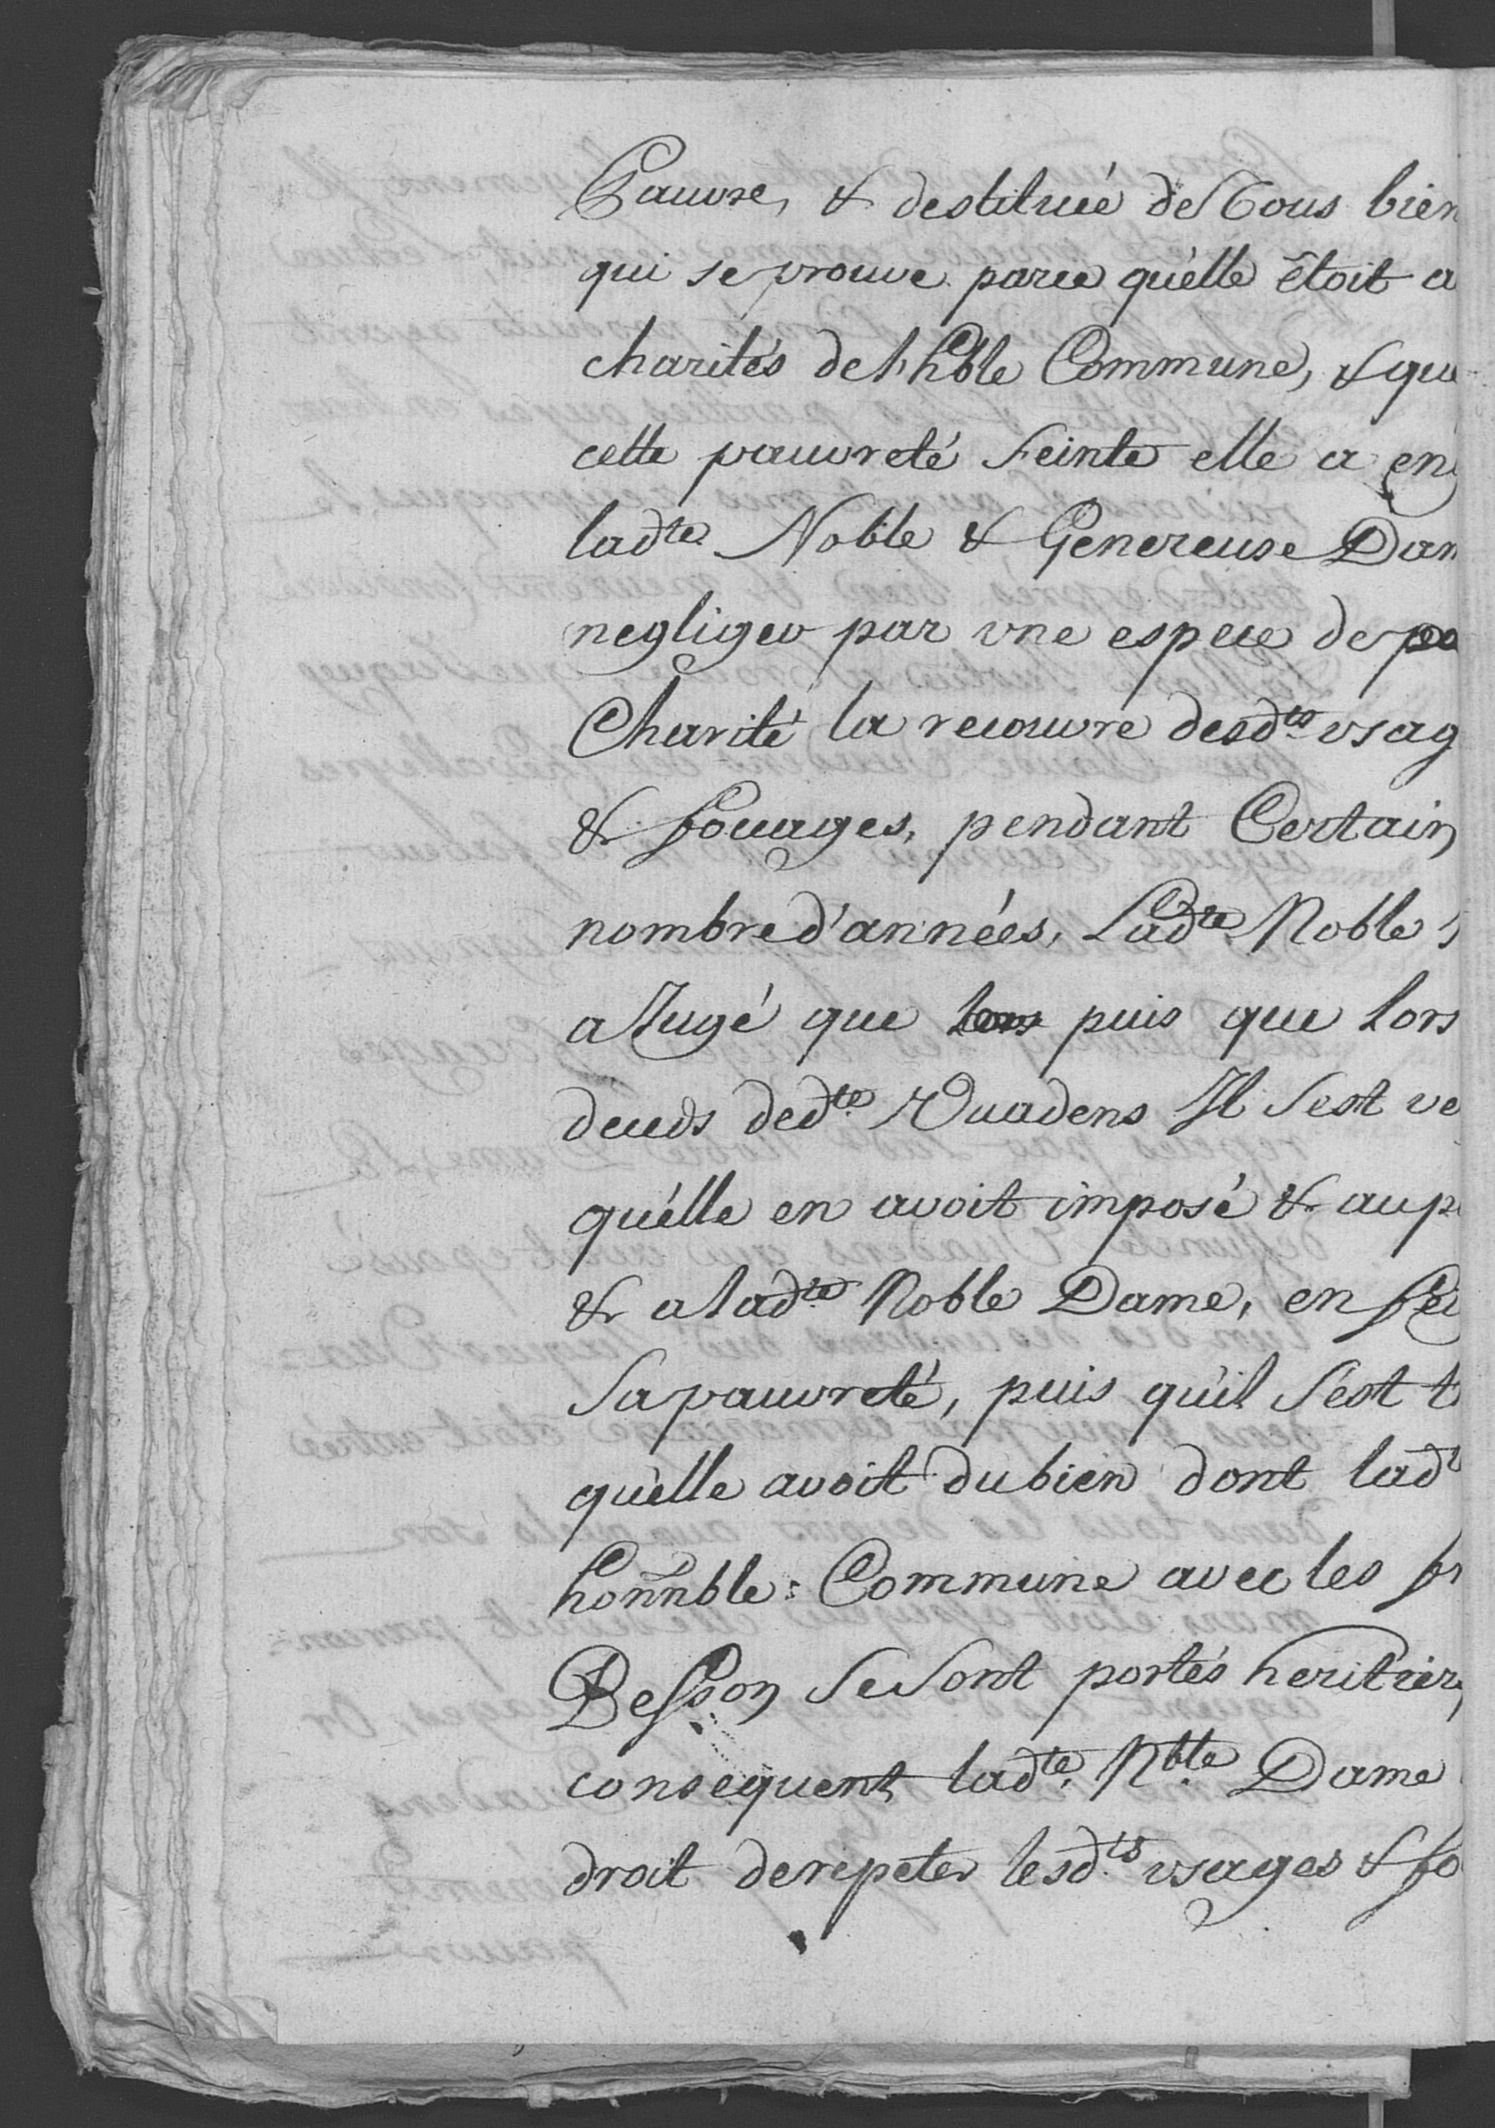 Pauvre, & destituée de Tous bien
qui se prouve parce qu'elle êtoit a
charités de l'hble Commune, & que
cette pauvreté feinte elle a en
ladte Noble & Genereuse Dam
negliger par vne espece de
Charité la recouvre desdts vsag
& focages, pendant Certain
nombre d'années, Ladte Noble
a Jugé que puis que lors
deceds dedte Vuadens Il s'est ve
qu'elle en avoit imposé & au p
& a ladte Noble Dame, en fei
sa pauvreté, puis qu'il s'est t
qu'elle avoit du bien dont ladt
honnble: Commune avec les fr
Besson se sont portés heritier
consequent ladte Nble Dame
droit de repeter lesdts vsages & fo